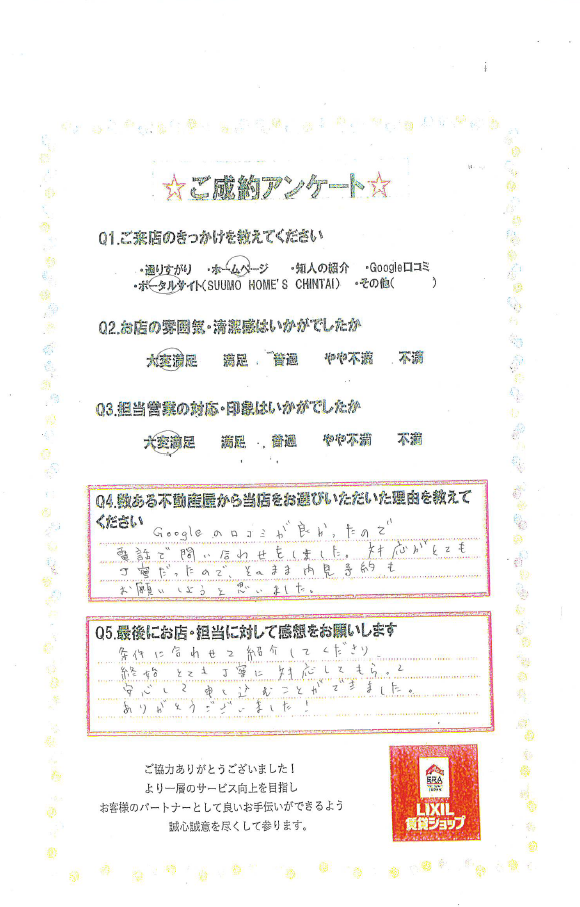 ☆ご成約アンケート☆
Q1.ご来店のきっかけを教えてください
・通りすがり ・ホームページ ・知人の紹介 ・Google口コミ
・ポータルサイト(SUUMO HOME'S CHINTAI) ・その他( )
Q2.お店の雰囲気・清潔感はいかがでしたか
大変満足 満足 普通 やや不満 不満
Q3.担当営業の対応・印象はいかがでしたか
大変満足 満足 普通 やや不満 不満
Q4.数ある不動産屋から当店をお選びいただいた理由を教えて
ください
Googleの口コミが良かったので
電話で問い合わせをしました。対応がとても
丁寧だったので、そのまま内見予約も
お願いしようと思いました。
Q5.最後にお店・担当に対して感想をお願いします
条件に合わせて紹介してくださり、
終始とても丁寧に対応してもらって
安心して申し込むことができました。
ありがとうございました!
ご協力ありがとうございました!
より一層のサービス向上を目指し
お客様のパートナーとして良いお手伝いができるよう
誠心誠意を尽くして参ります。
ERA
LIXIL
賃貸ショップ